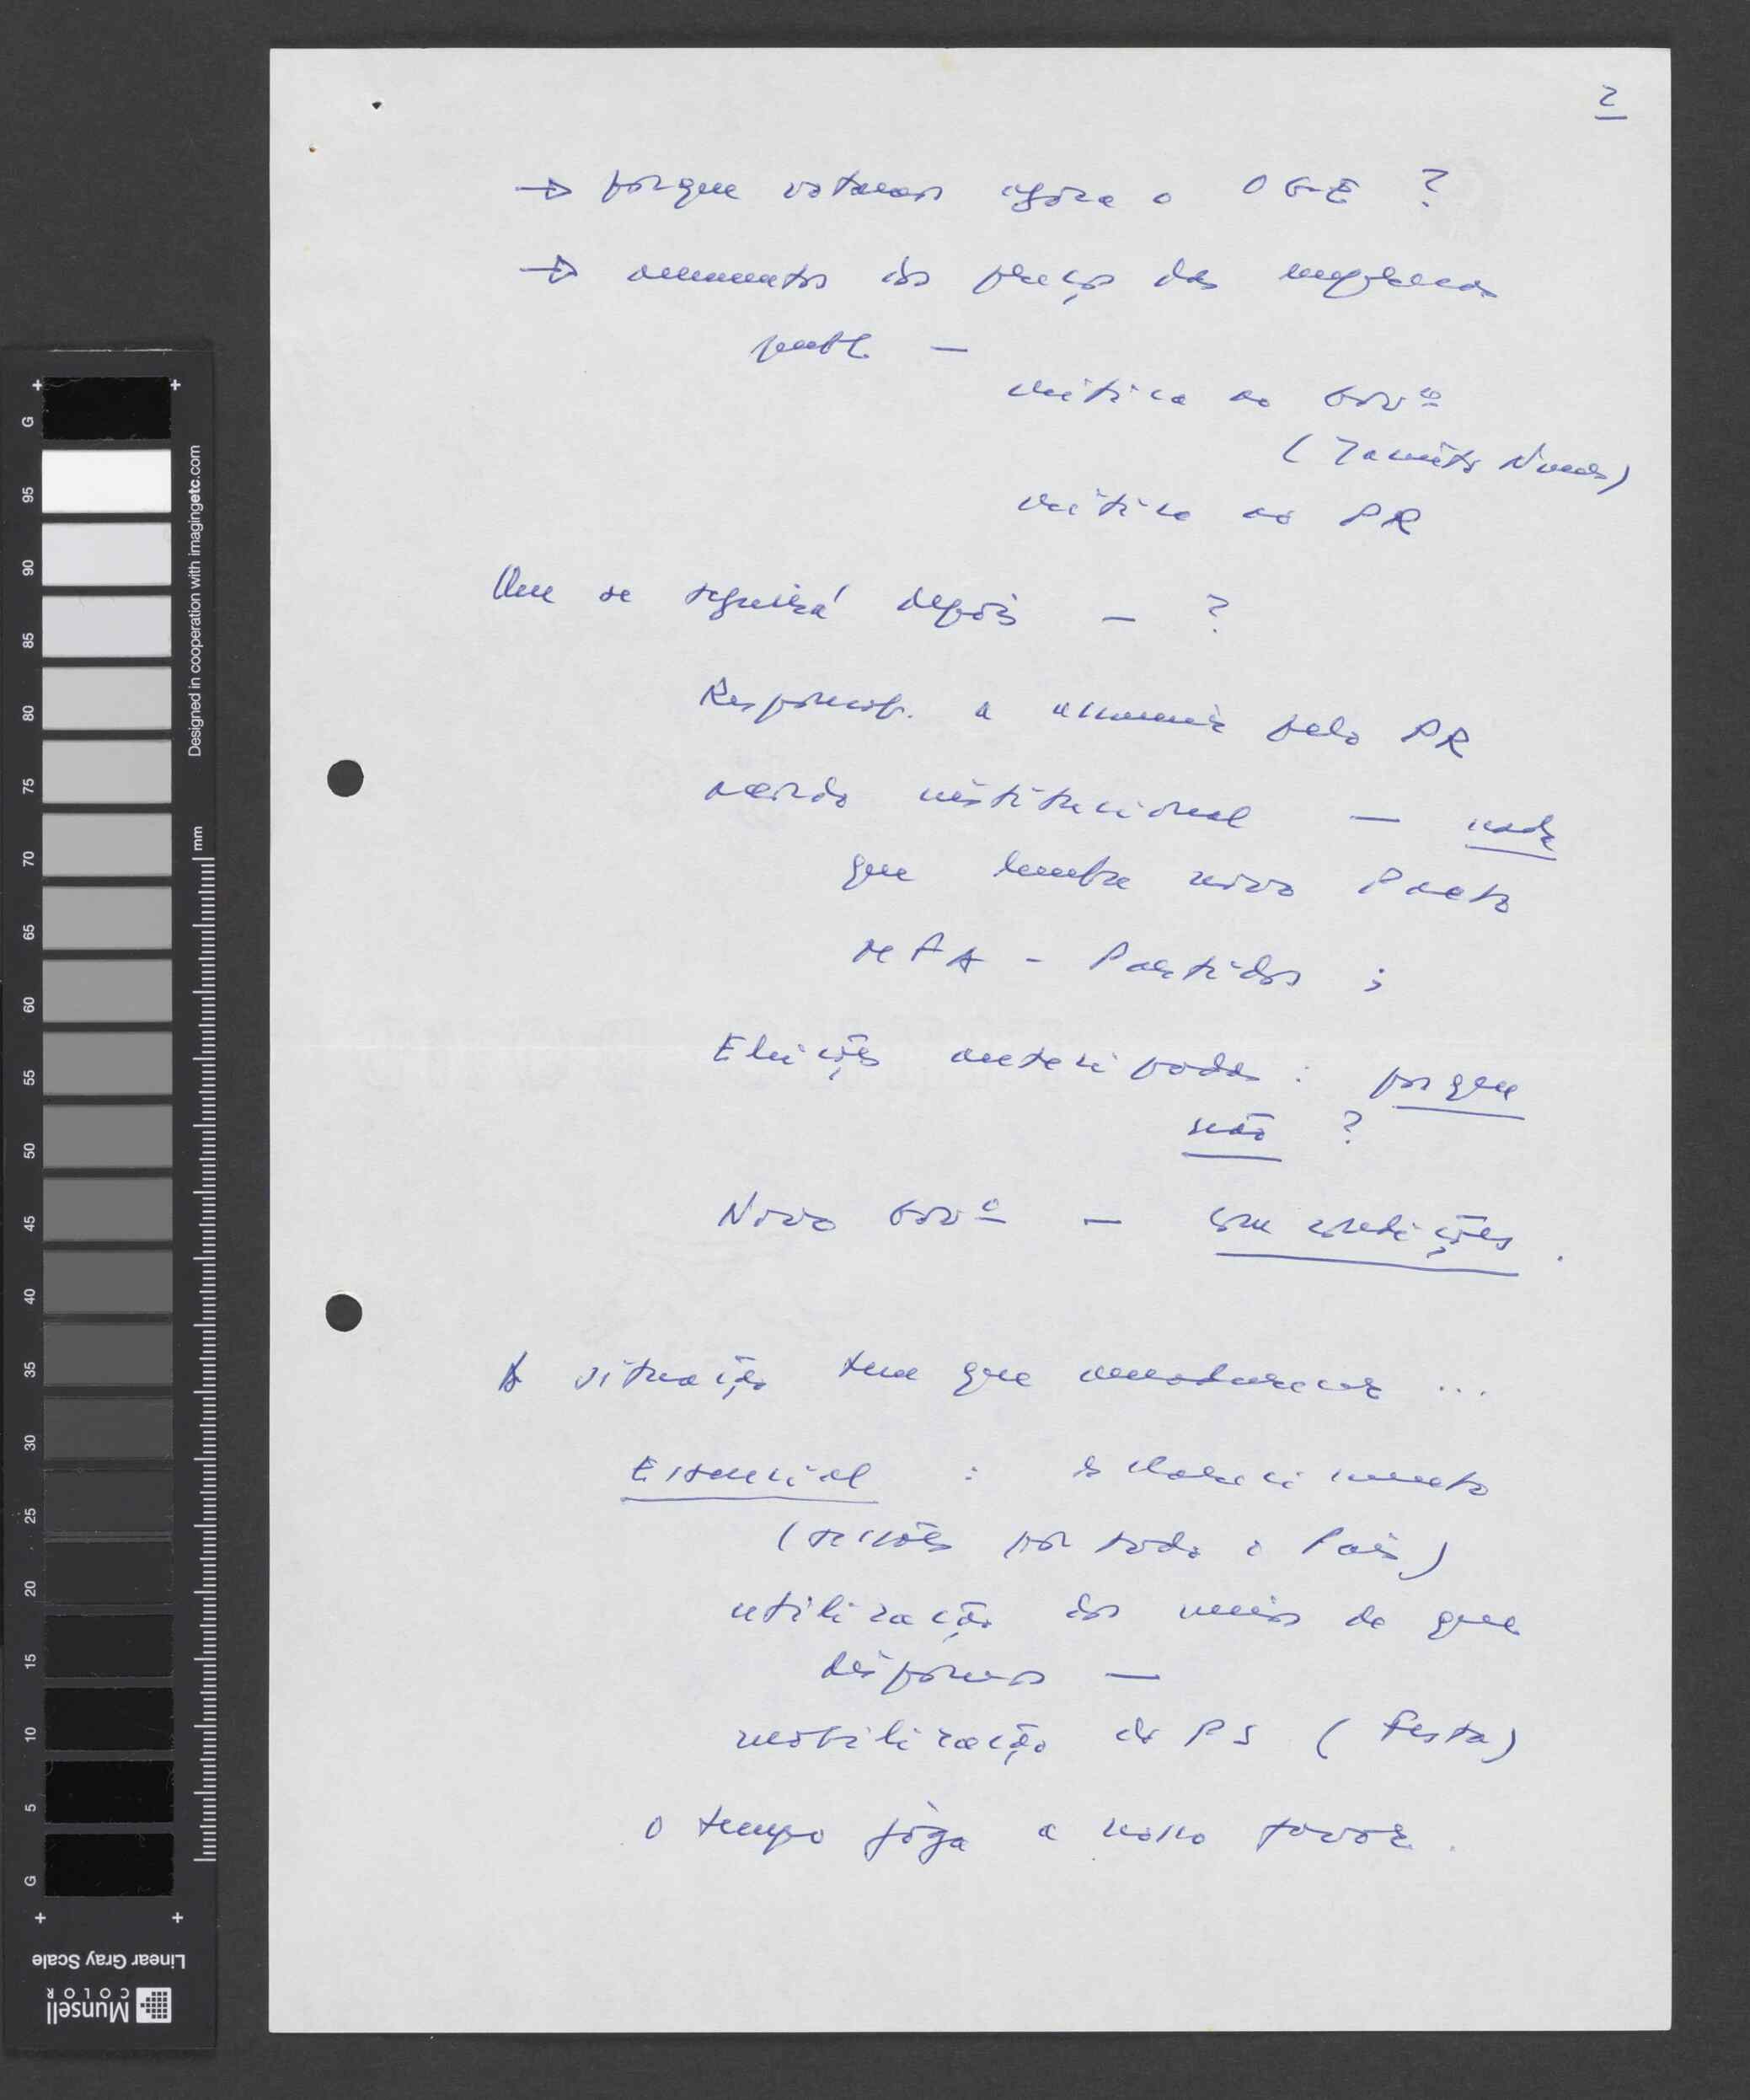 2
→ porque votamos agora o OGE ?
→ aumentos dos preços das empresas
publ. —
crítica ao Govº
( Nunes)
crítica ao PR
Que se seguirá depois — ?
Responsab. a assumir pelo PR
acordo institucional — nada
que lembre novo Pacto
MFA - Partidos ;
Eleições antecipadas : porque
não ?
Novo Govº — com condições .
A situação tem que amadurecer ...
Essencial : esclarecimento
(sessões por todo o País)
utilização dos meios de que
dispomos —
mobilização do PS ( Festa)
o tempo joga a nosso favor .
G
95
90
85
80
75
70
65
60
55
50
45
40
35
30
25
20
15
10
5
G
Designed in cooperation with imagingetc.com
mm
Linear Gray Scale
Munsell
COLOR